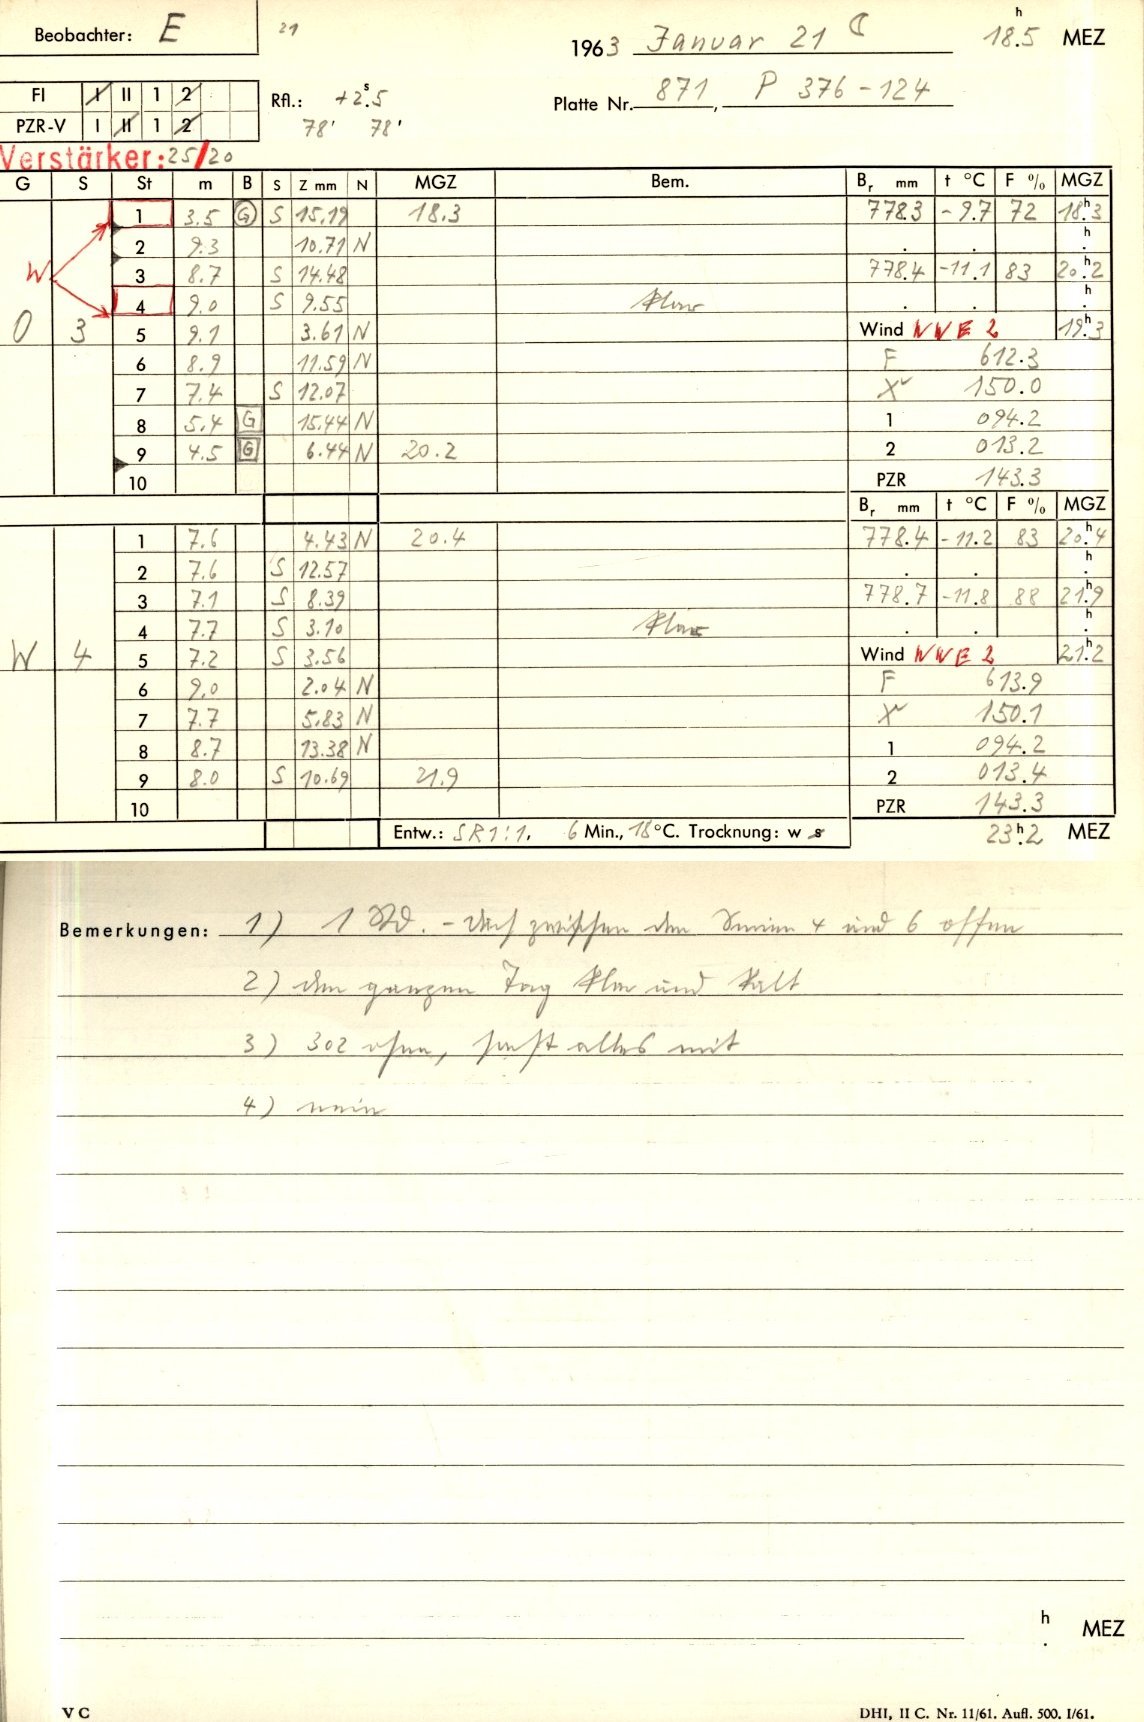 Beobachter: E 21 1963 Januar 21 ☾ 18.5 h MEZ
FI I II 1 2 Rfl.: +2.5 s Platte Nr. 871, P 376-124
PZR-V I II 1 2 78' 78'
Verstärker: 25/20
G S St m B S Z mm N MGZ Bem. Br mm t °C F % MGZ
1 3.5 G S 15.19 18.3 778.3 -9.7 72 18.3 h
2 9.3 10.71 N . . h
W 3 8.7 S 14.48 778.4 -11.1 83 20.2 h
4 9.0 S 9.55 klar . . h .
O 3 5 9.1 3.61 N Wind NNE 2 19.3 h
6 8.9 11.59 N F 612.3
7 7.4 S 12.07 X 150.0
8 5.4 G 15.44 N 1 094.2
9 4.5 G 6.44 N 20.2 2 013.2
10 PZR 143.3
Br mm t °C F % MGZ
1 7.6 4.43 N 20.4 778.4 -11.2 83 20.4 h
2 7.6 S 12.57 . . h .
3 7.1 S 8.39 778.7 -11.8 88 21.9 h
4 7.7 S 3.10 klar . . h .
W 4 5 7.2 S 3.56 Wind NNE 2 21.2 h
6 9.0 2.04 N F 613.9
7 7.7 5.83 N X 150.1
8 8.7 13.38 N 1 094.2
9 8.0 S 10.69 21.9 2 013.4
10 PZR 143.3
Entw.: SR 1:1, 6 Min., 18 °C. Trocknung: w s 23.2 h MEZ
Bemerkungen: 1) 1 Std. - Dach zwischen den Serien 4 und 6 offen
2) den ganzen Tag klar und kalt
3) 302 ohne, sonst alles mit
4) nein
h . MEZ
V C DHI, II C. Nr. 11/61. Aufl. 500. I/61.